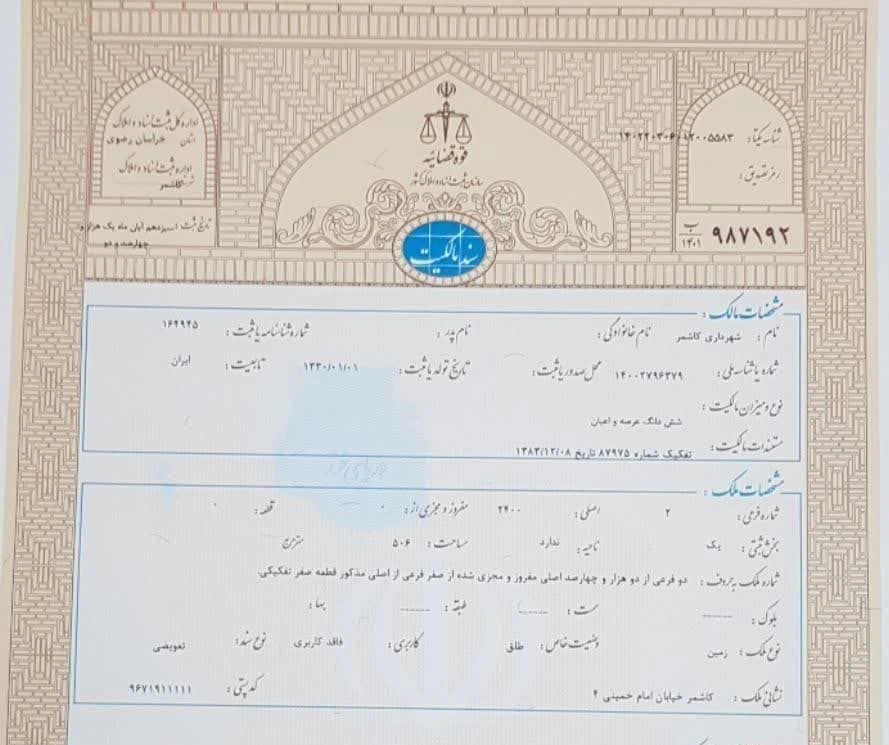 قوه قضائیه
سازمان ثبت اسناد و املاک کشور
سند مالکیت
شناسه یکتا: ۱۴۰۲۲۰۳۰۶۰۱۲۰۰۵۵۸۳
رمز تصدیق:
۹۸۷۱۹۲ ب ۱۴۰۱
اداره کل ثبت اسناد و املاک
استان خراسان رضوی
اداره ثبت اسناد و املاک
کاشمر
تاریخ ثبت: سیزدهم آبان ماه یک هزار و
چهارصد و دو
مشخصات مالک:
نام: شهرداری کاشمر نام خانوادگی: نام پدر: شماره شناسنامه یا ثبت: ۱۶۴۹۴۵
شماره یا شناسه ملی: ۱۴۰۰۲۷۹۶۳۷۹ محل صدور یا ثبت: تاریخ تولد یا ثبت: ۱۳۳۰/۰۱/۰۱ تابعیت: ایران
نوع و میزان مالکیت: شش دانگ عرصه و اعیان
مستندات مالکیت: تفکیک شماره ۸۷۹۷۵ تاریخ ۱۳۸۳/۱۲/۰۸
مشخصات ملک:
شماره فرعی: ۲ اصلی: ۲۴۰۰ مفروز و مجزی از: ۰ قطعه: ۰
بخش ثبتی: یک ناحیه: ندارد مساحت: ۵۰۶ مترمربع
شماره ملک به حروف: دو فرعی از دو هزار و چهارصد اصلی مفروز و مجزی شده از صفر فرعی از اصلی مذکور قطعه صفر تفکیکی.
بلوک: ------ سمت: ------ طبقه: ------ بها:
نوع ملک: زمین وضعیت خاص: طلق کاربری: فاقد کاربری نوع سند: تعویضی
نشانی ملک: کاشمر خیابان امام خمینی ۴ کد پستی: ۹۶۷۱۹۱۱۱۱۱